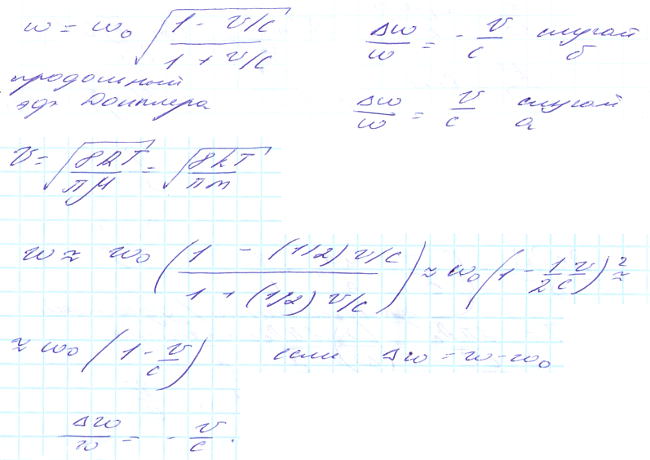 w = w₀ √((1 - v/c)/(1 + v/c))
Δw/w = - v/c случай б
продольный
эф. Доплера
Δw/w = v/c случай а
v = √(8RT/πμ) = √(8kT/πm)
w ≈ w₀ ((1 - (1/2) v/c)/(1 + (1/2) v/c)) ≈ w₀ (1 - 1/2 v/c)² ≈
≈ w₀ (1 - v/c) если Δw = w - w₀
Δw/w = - v/c.